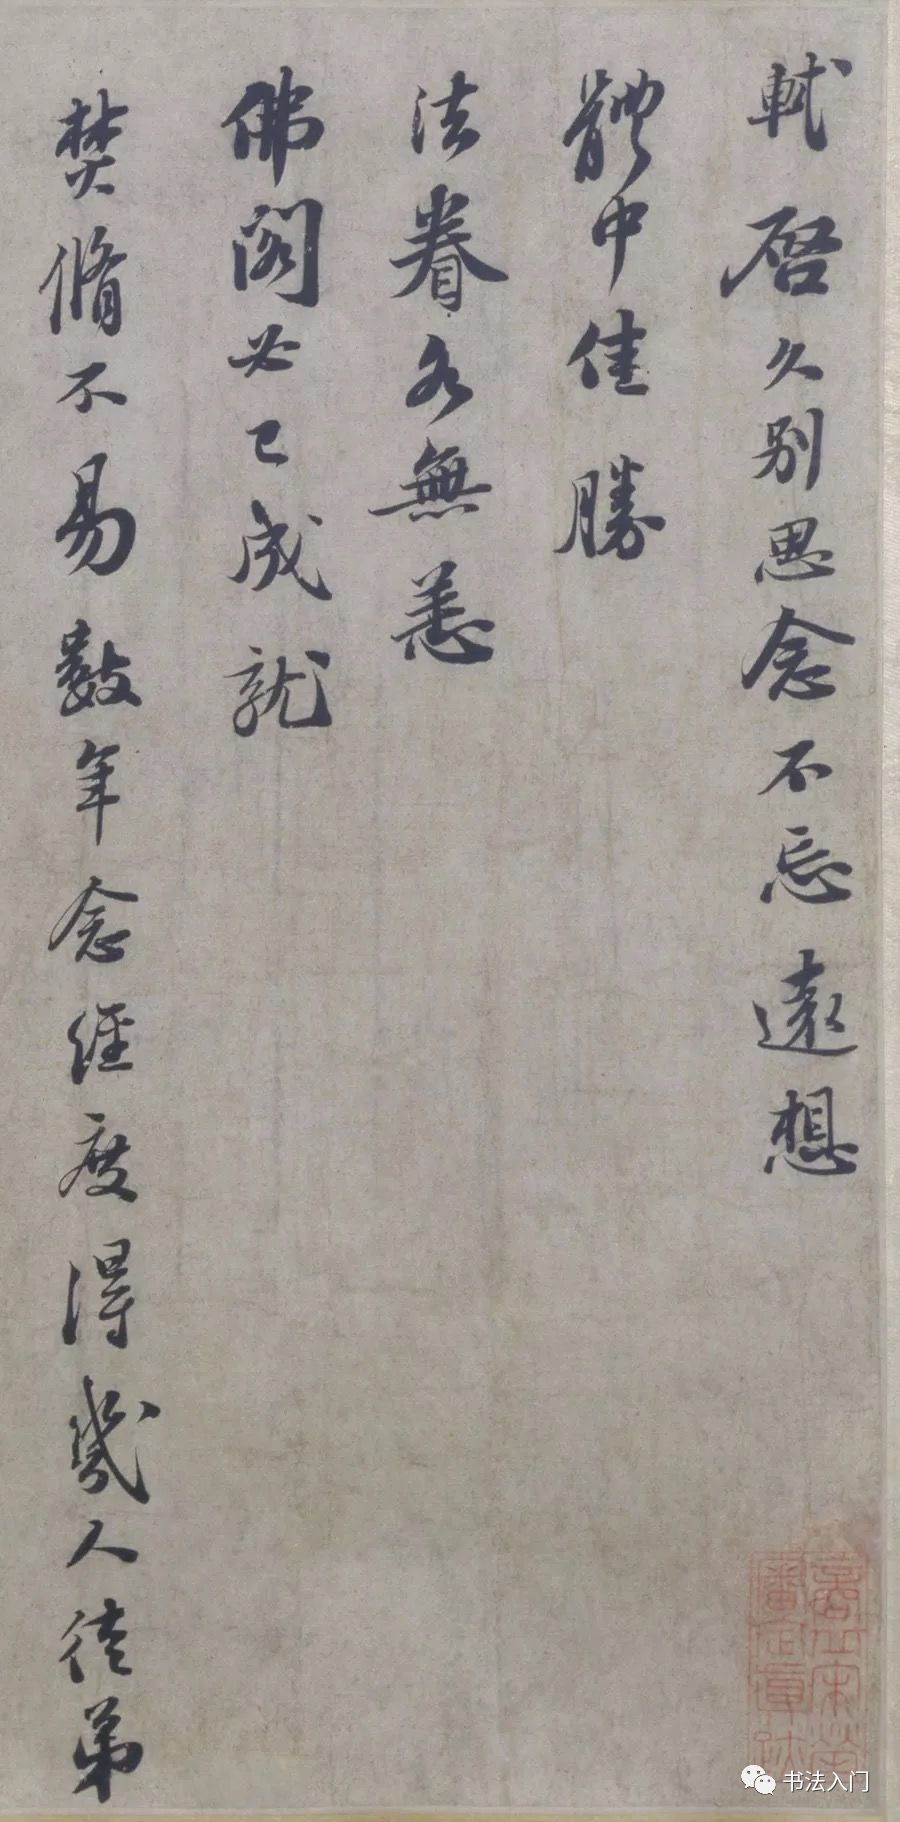 軾啓久別思念不忘遠想
體中佳勝
法眷各無恙
佛閣必已成就
焚脩不易數年念經度得幾人徒弟
商丘宋犖
審定真跡
书法入门